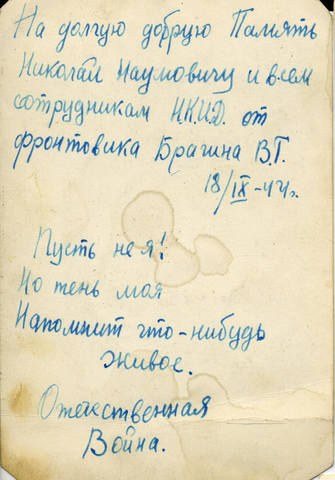 На долгую добрую Память
Николай Наумовичу и всем
сотрудникам Н.К.И.Д. от
фронтовика Брагина В.Г.
18/IX-44г.
Пусть не я!
Но тень моя
Напомнит что-нибудь
живое.
Отечественная
Война.